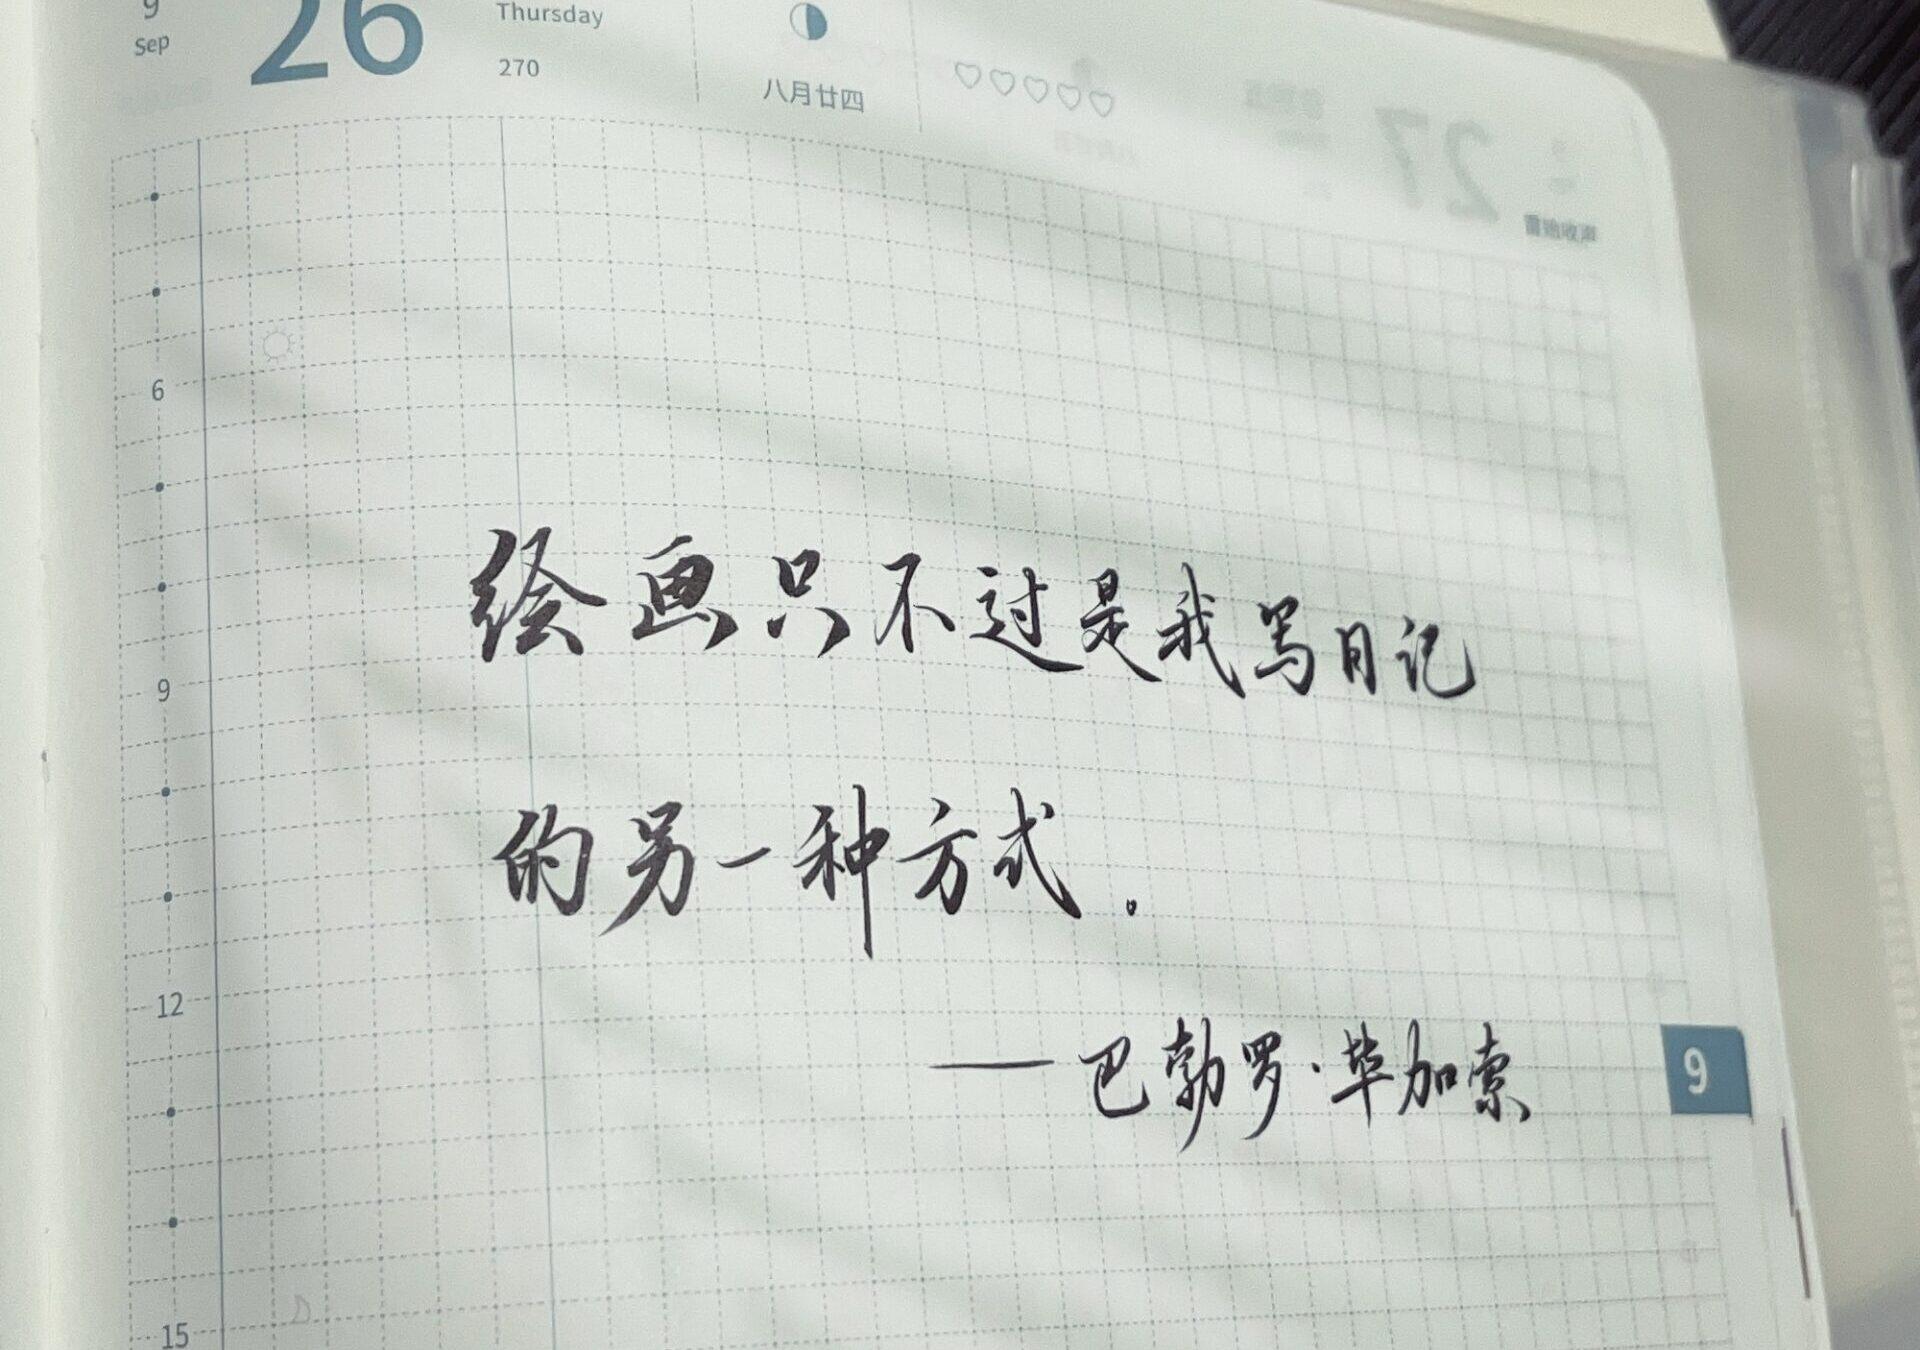 9
Sep
26
Thursday
270
八月廿四
27
雷始收声
6
9
12
15
绘画只不过是我写日记
的另一种方式。
——巴勃罗·毕加索
9